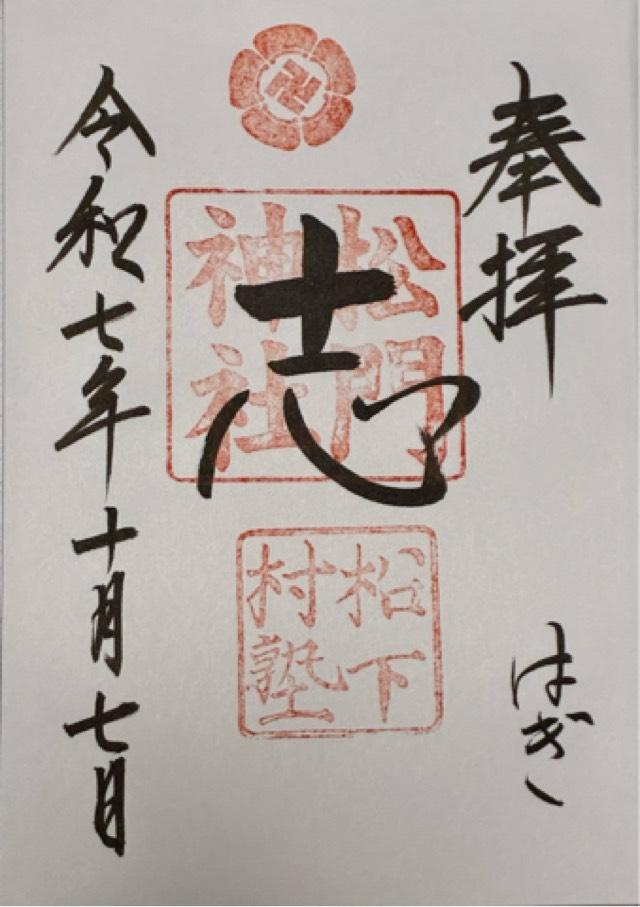 奉拝
はぎ
松門
神社
志
松下
村塾
令和七年十月七日